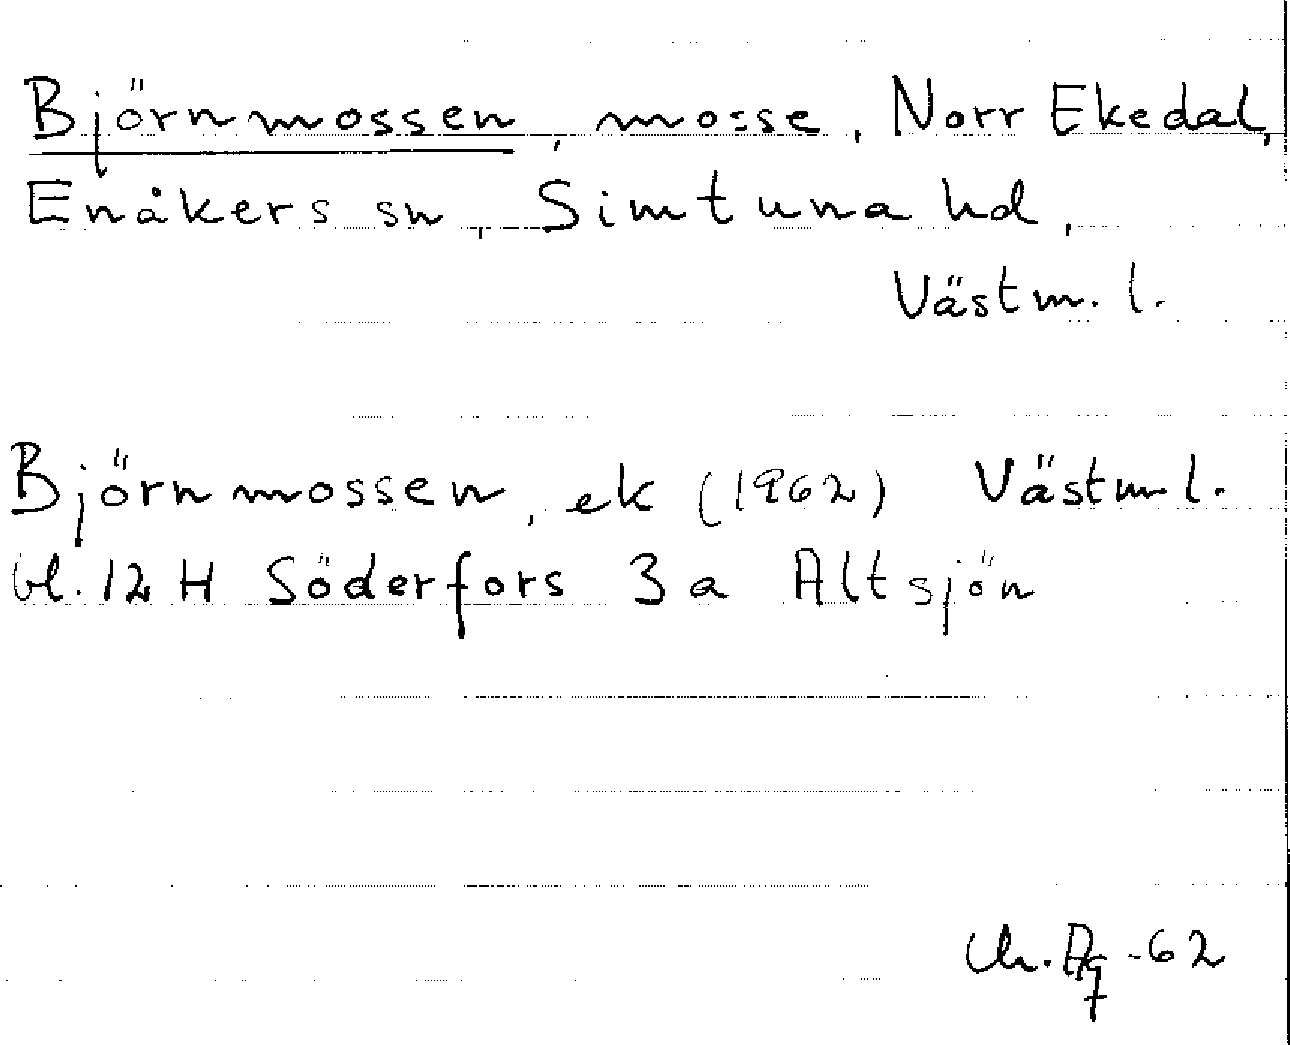 Björnmossen, mosse, Norr Ekedal,
Enåkers sn, Simtuna hd,
Västm. l.
Björnmossen, ek (1962) Västm l.
bl. 12 H Söderfors 3 a Altsjön
-62